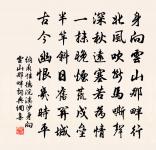 身向雲山那畔行
北風吹斷馬嘶聲
深秋遠塞若為情
一抹晚煙荒戍壘
半竿斜日舊關城
古今幽恨幾時平
性德浣溪沙身向
雲山那畔詞